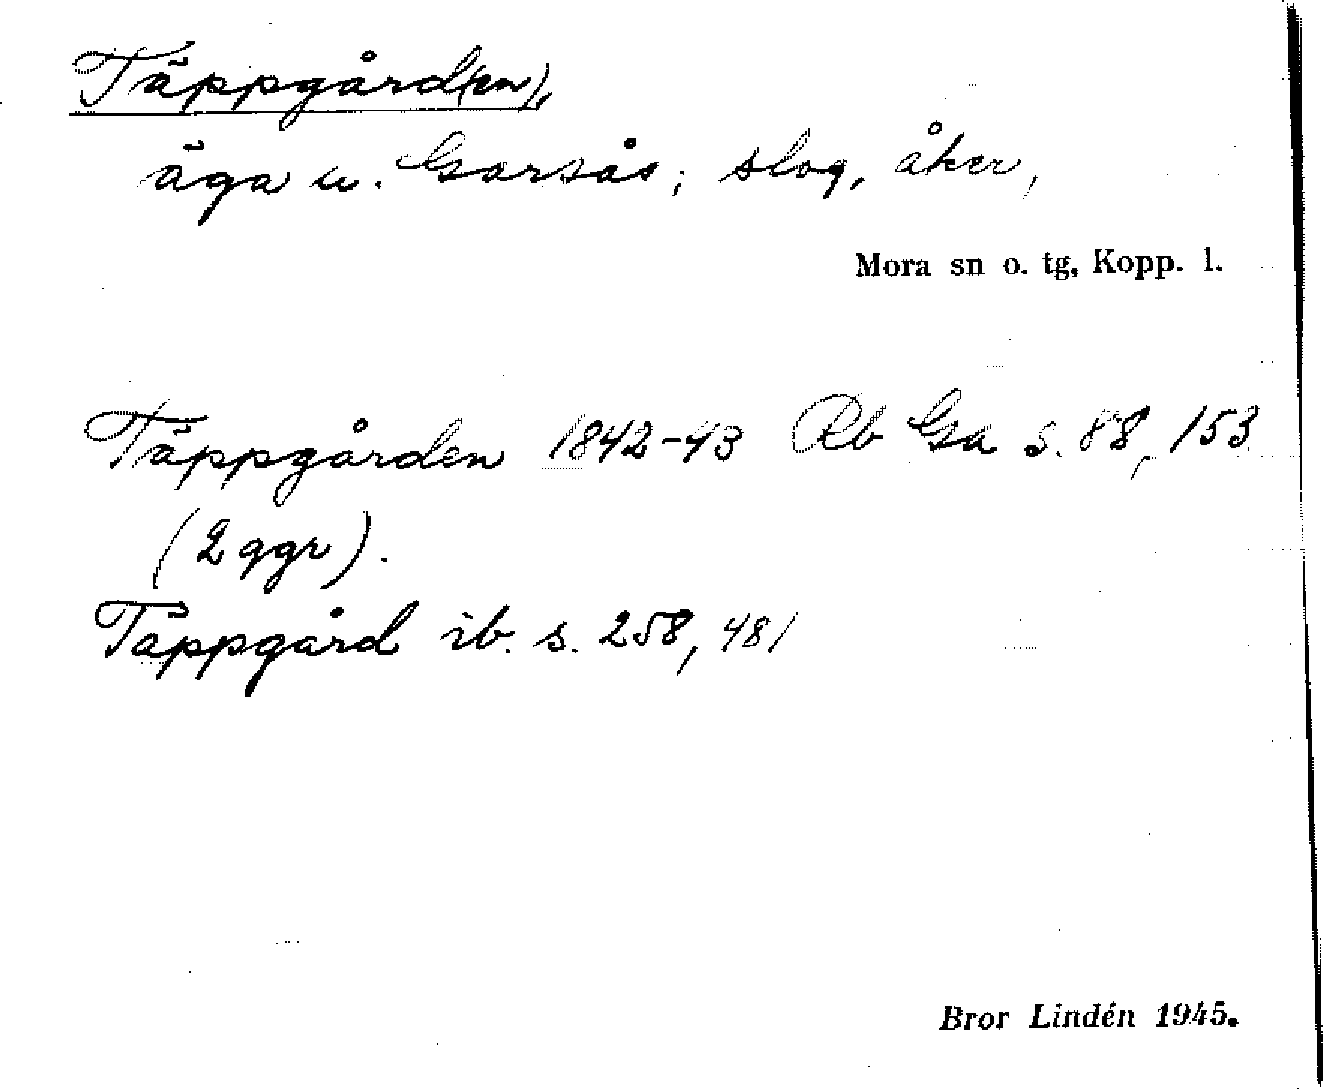 Täppgård(en),
äga u. Garsås; slog, åker,
Mora sn o. tg, Kopp. l.
Täppgården 1842-43 Rb Ga s. 88, 153
(2 ggr).
Täppgård ib. s. 258, 481
Bror Lindén 1945.